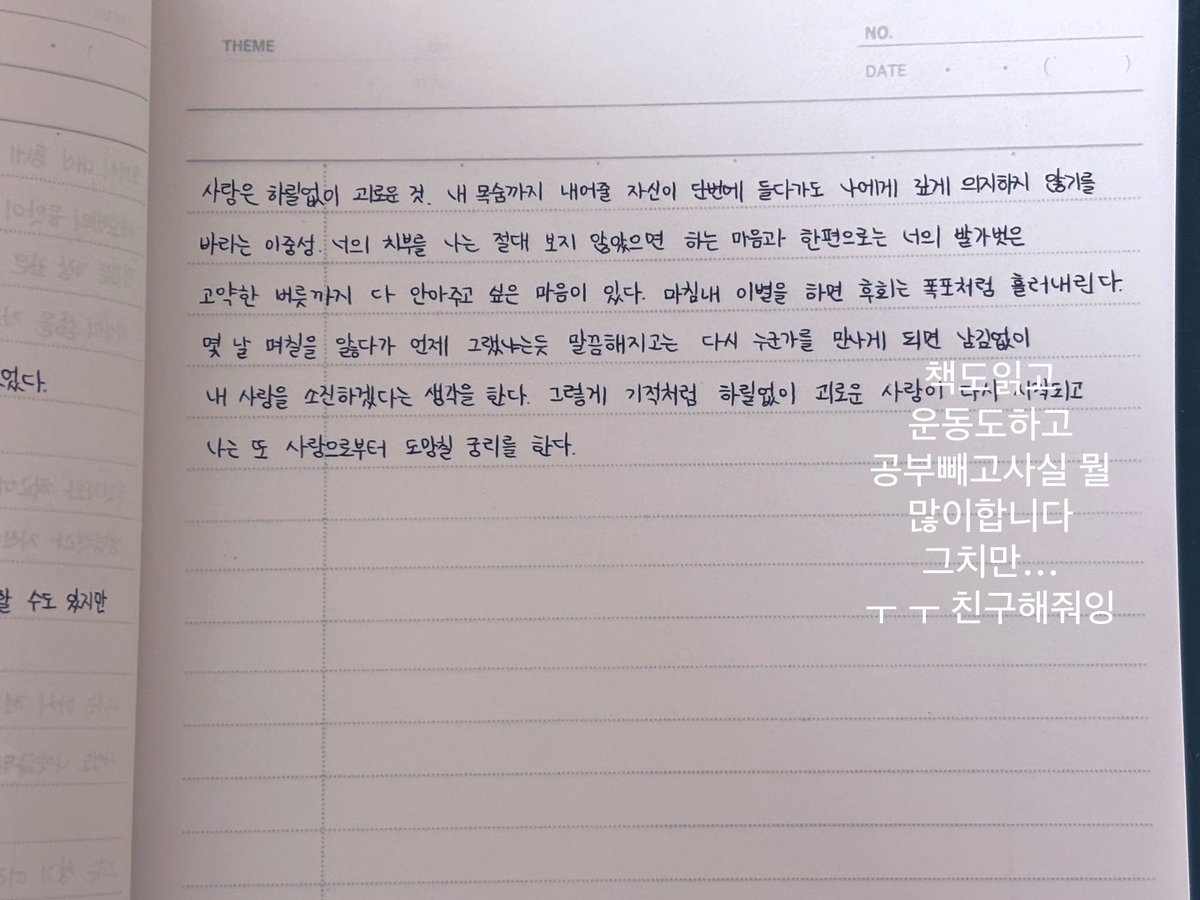 THEME
NO.
DATE . . ( )
사랑은 하릴없이 괴로운 것. 내 목숨까지 내어줄 자신이 단번에 들다가도 나에게 깊게 의지하지 않기를
바라는 이중성. 너의 치부를 나는 절대 보지 않았으면 하는 마음과 한편으로는 너의 발가벗은
고약한 버릇까지 다 안아주고 싶은 마음이 있다. 마침내 이별을 하면 후회는 폭포처럼 흘러내린다.
몇 날 며칠을 앓다가 언제 그랬냐는듯 말끔해지고는 다시 누군가를 만나게 되면 남김없이
내 사랑을 소진하겠다는 생각을 한다. 그렇게 기적처럼 하릴없이 괴로운 사랑이 다시 시작되고
나는 또 사랑으로부터 도망칠 궁리를 한다.
책도읽고
운동도하고
공부빼고사실 뭘
많이합니다
그치만...
ㅜ ㅜ 친구해줘잉
었다.
할 수도 있지만